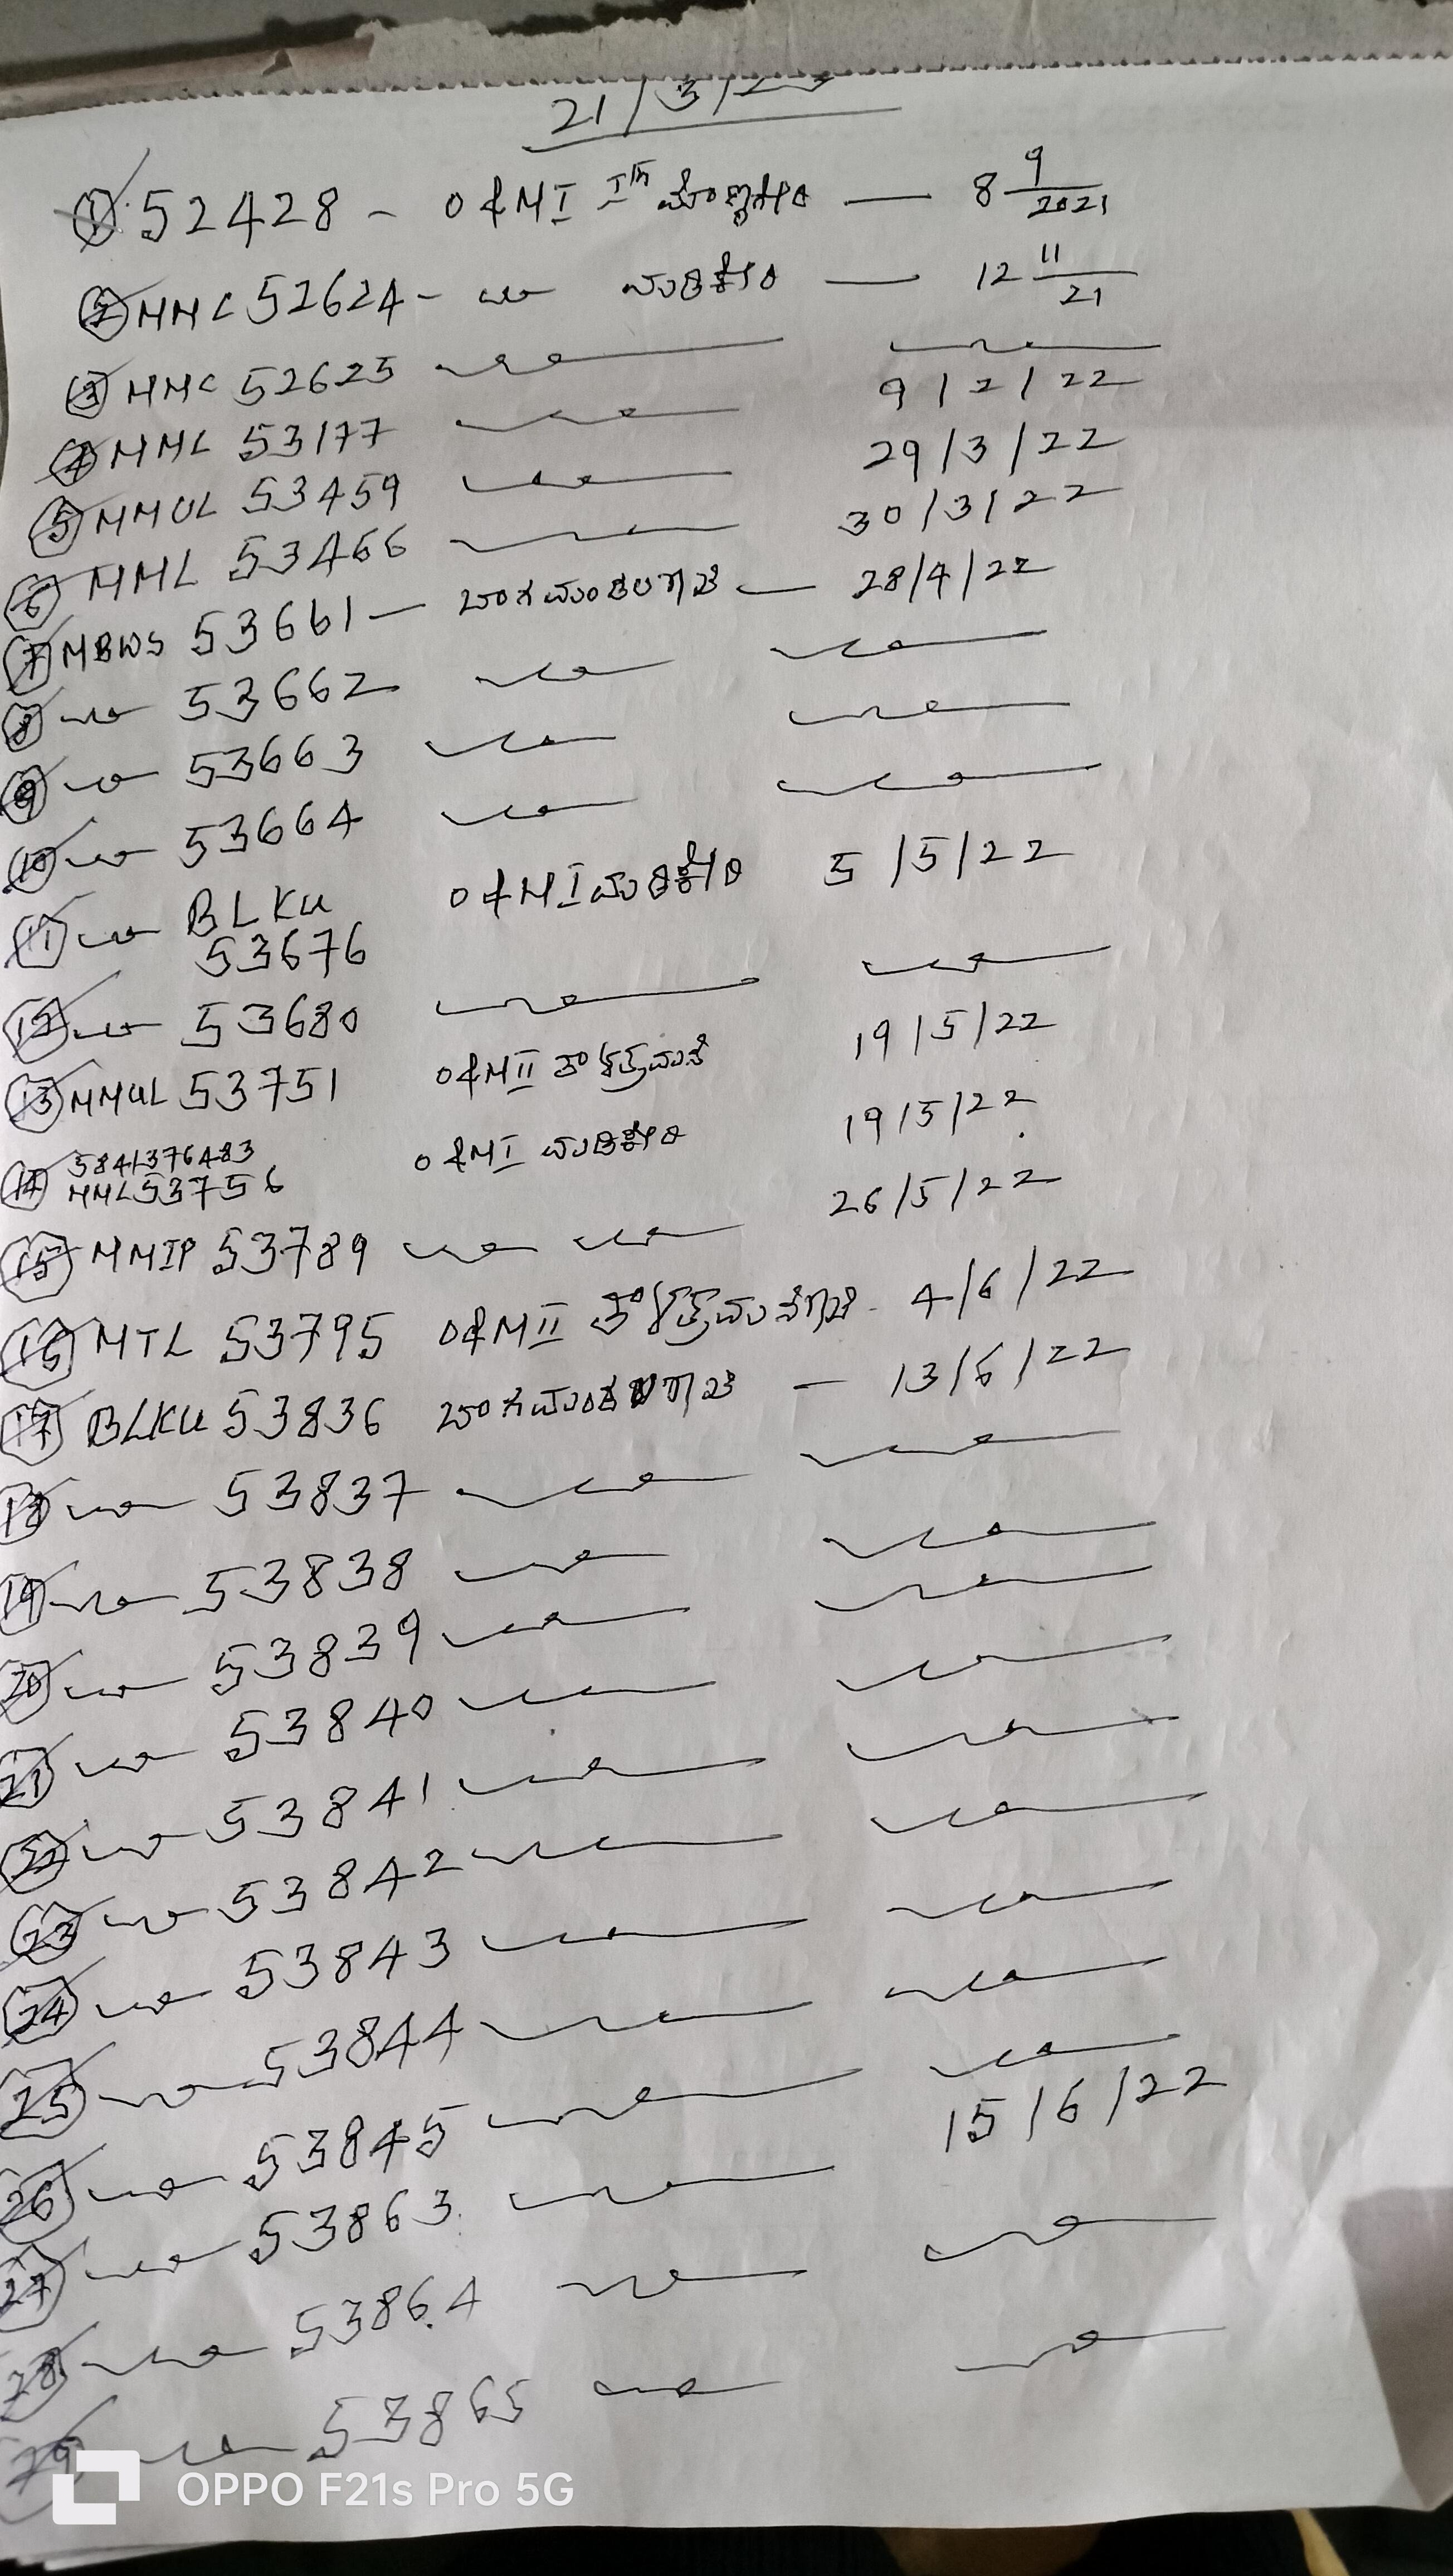 21/3/23
① 52428 - O&M I — 8 9/2021
② MMC 52624 - ಮಡಿಕೇರಿ — 12 11/21
③ MMC 52625
④ MML 53177 9/2/22
⑤ MMUL 53459 29/3/22
⑥ MML 53466 30/3/22
⑦ MBWS 53661 — — 28/4/22
⑧ 53662
⑨ 53663
⑩ 53664
⑪ BLKU O&M I ಮಡಿಕೇರಿ 5/5/22
53676
⑫ 53680
⑬ MMUL 53751 O&M II 19/5/22
5841376483
⑭ MML 53756 O&M I ಮಡಿಕೇರಿ 19/5/22
⑮ MMIP 53789 26/5/22
⑯ MTL 53795 O&M II 4/6/22
⑰ BLKU 53836 — 13/6/22
⑱ 53837
⑲ 53838
⑳ 53839
㉑ 53840
㉒ 53841
㉓ 53842
㉔ 53843
㉕ 53844
㉖ 53845
㉗ 53863 15/6/22
㉘ 53864
㉙ 53865
OPPO F21s Pro 5G